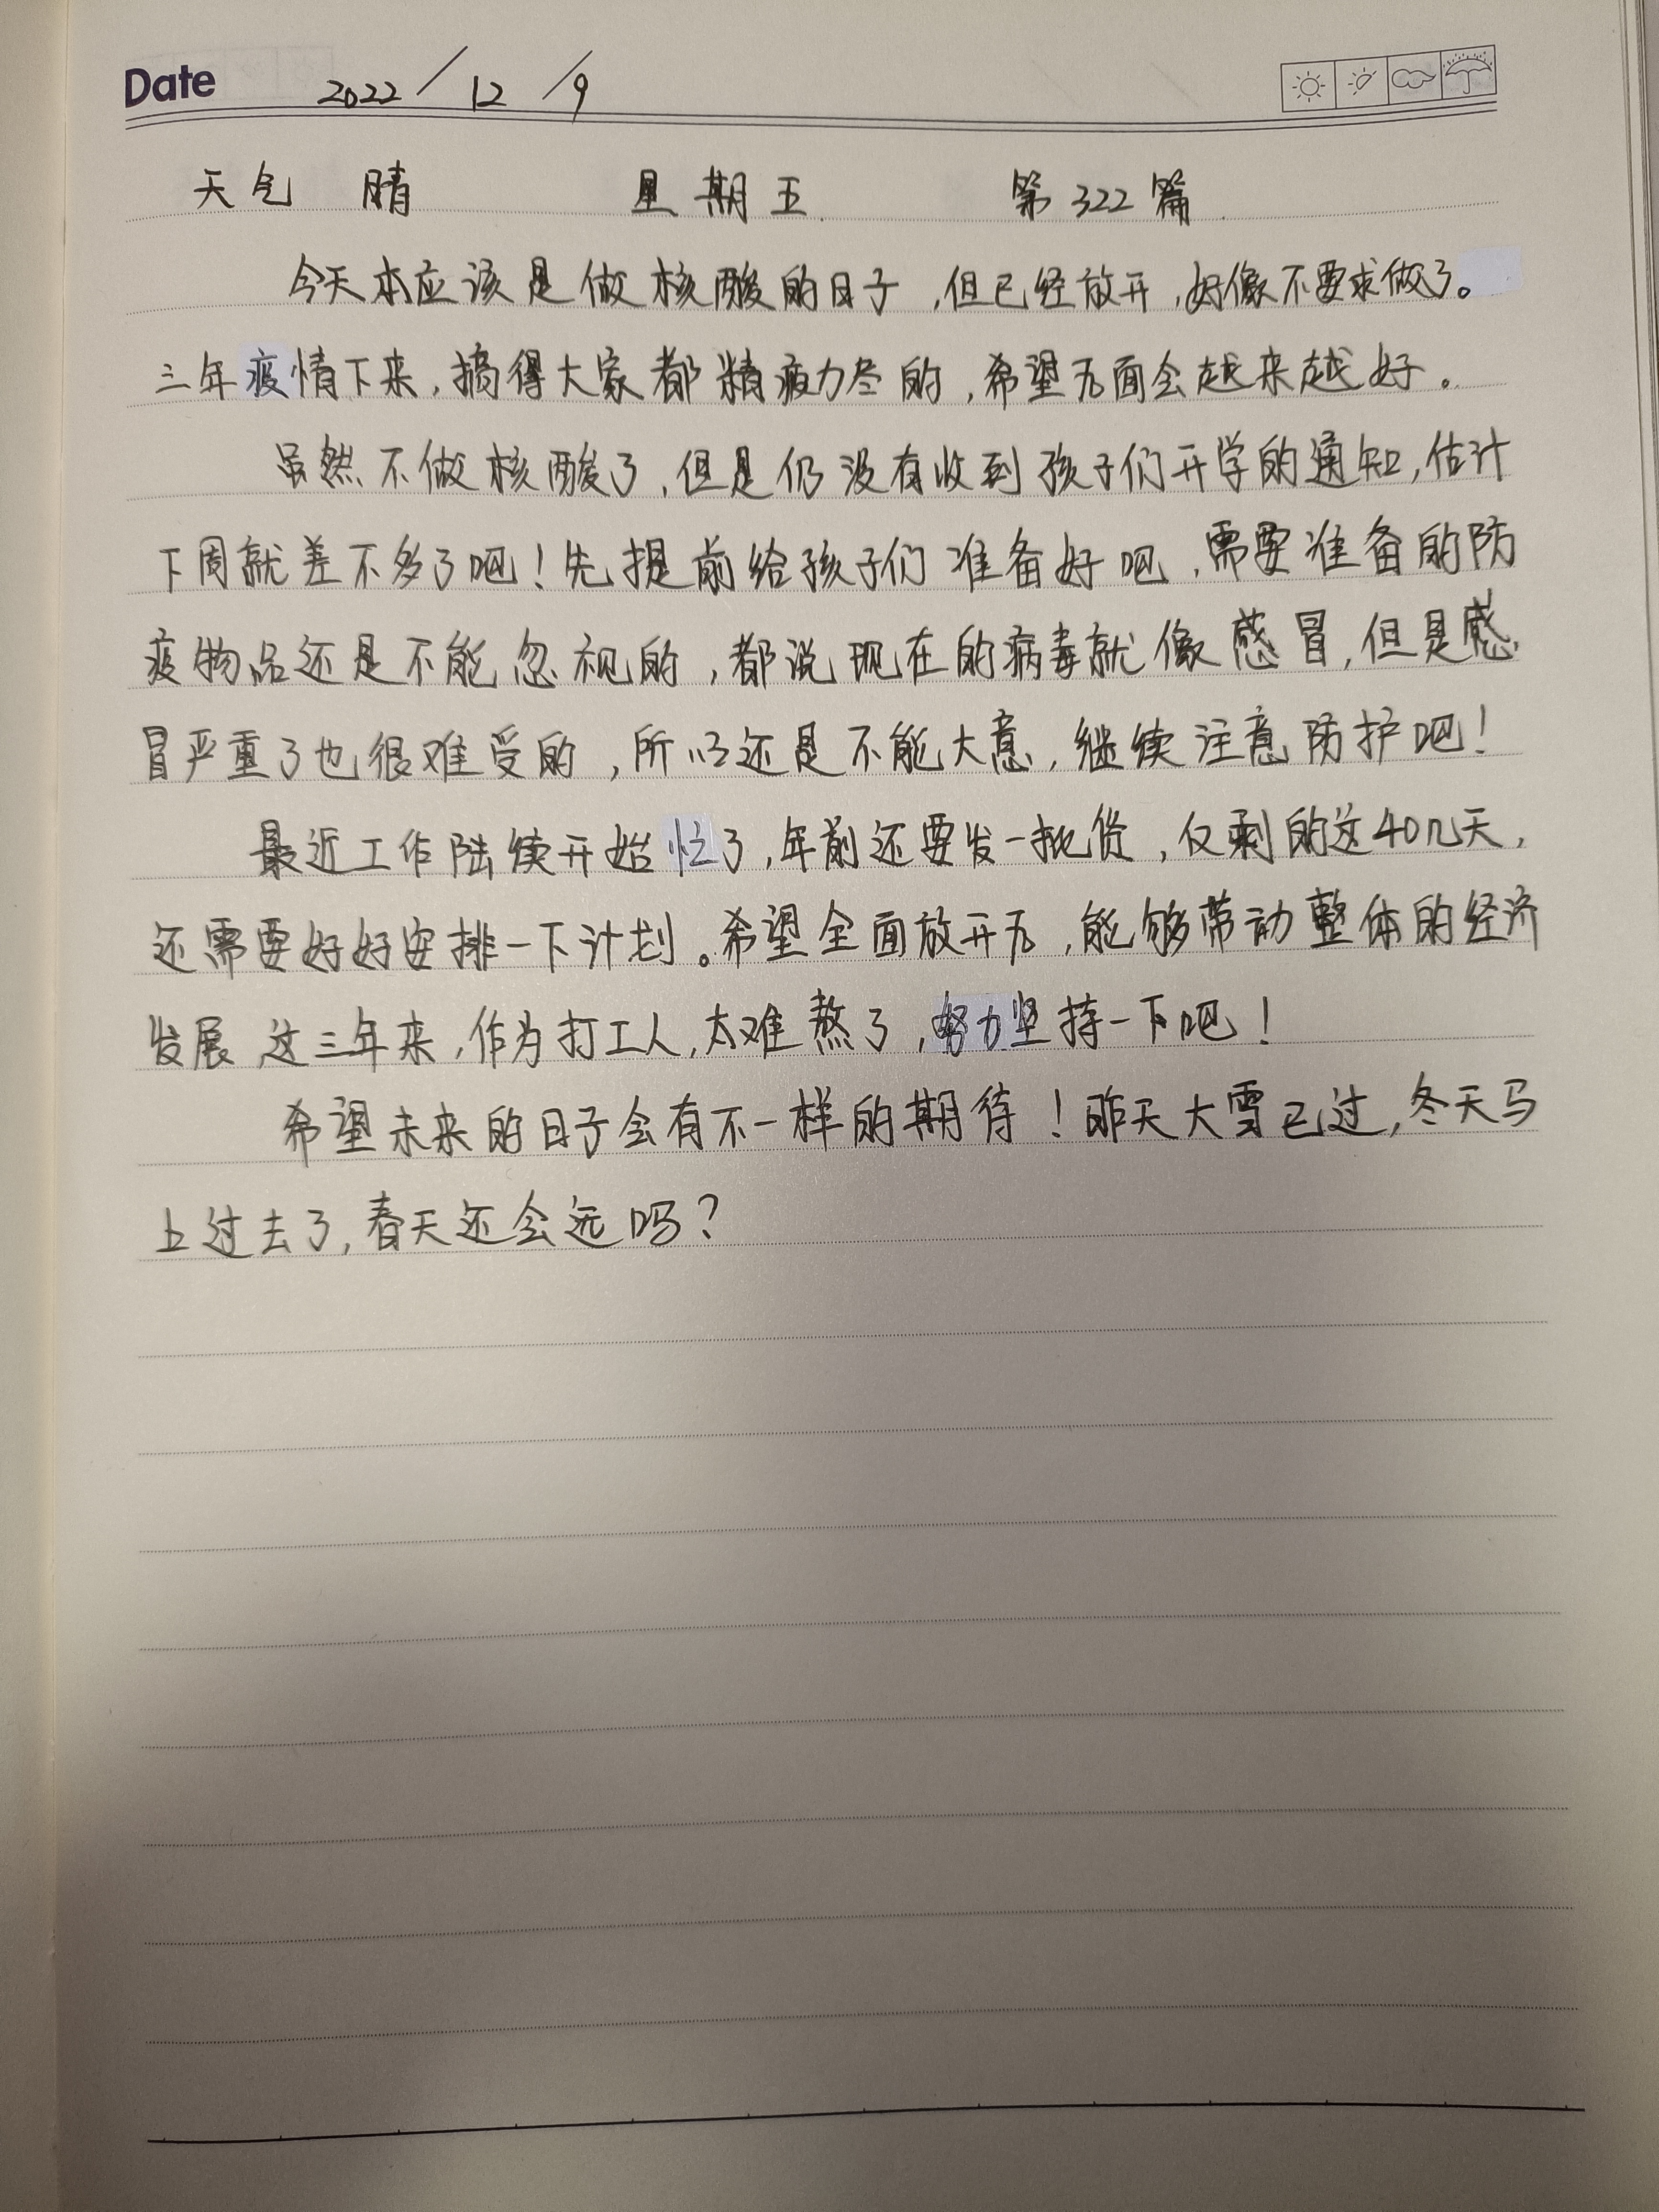 Date 2022/12/9
天气 晴 星期五 第322篇
今天本应该是做核酸的日子,但已经放开,好像不要求做了。
三年疫情下来,搞得大家都精疲力尽的,希望后面会越来越好。
虽然不做核酸了,但是仍没有收到孩子们开学的通知,估计
下周就差不多了吧!先提前给孩子们准备好吧,需要准备的防
疫物品还是不能忽视的,都说现在的病毒就像感冒,但是感
冒严重了也很难受的,所以还是不能大意,继续注意防护吧!
最近工作陆续开始忙了,年前还要发一批货,仅剩的这40几天,
还需要好好安排一下计划。希望全面放开后,能够带动整体的经济
发展 这三年来,作为打工人,太难熬了,努力坚持一下吧!
希望未来的日子会有不一样的期待!昨天大雪已过,冬天马
上过去了,春天还会远吗?